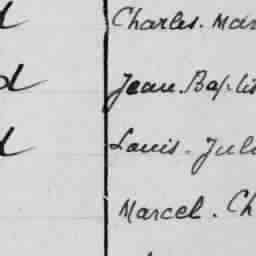 d Charles. Mar
d Jean. Baptis
d Louis. Juli
Marcel. Ch